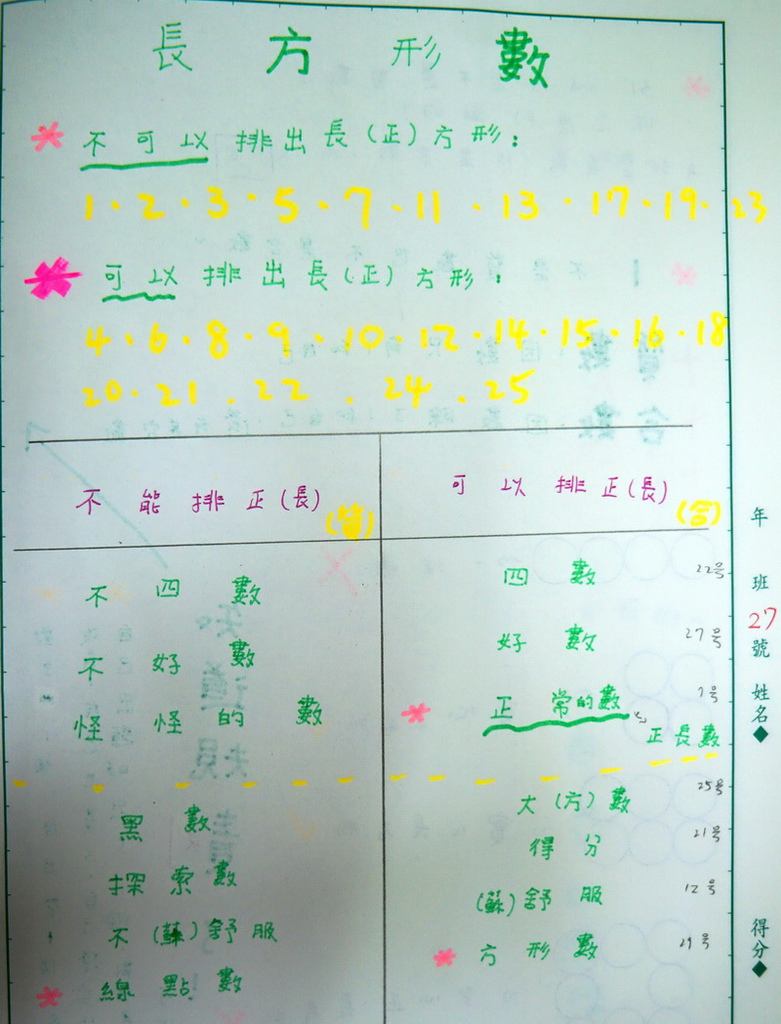 長方形數
不可以排出長(正)方形:
1.2.3.5.7.11.13.17.19.23
可以排出長(正)方形:
4.6.8.9.10.12.14.15.16.18
20.21.22.24.25
不能排正(長)
(質)
不四數
不好數
怪怪的數
黑數
探索數
不(蘇)舒服
線點數
可以排正(長)
(合)
四數 22号
好數 27号
正常的數 7号
正長數
大(方)數 25号
得分 21号
(蘇)舒服 12号
方形數 29号
年
班
27
號
姓名◆
得分◆